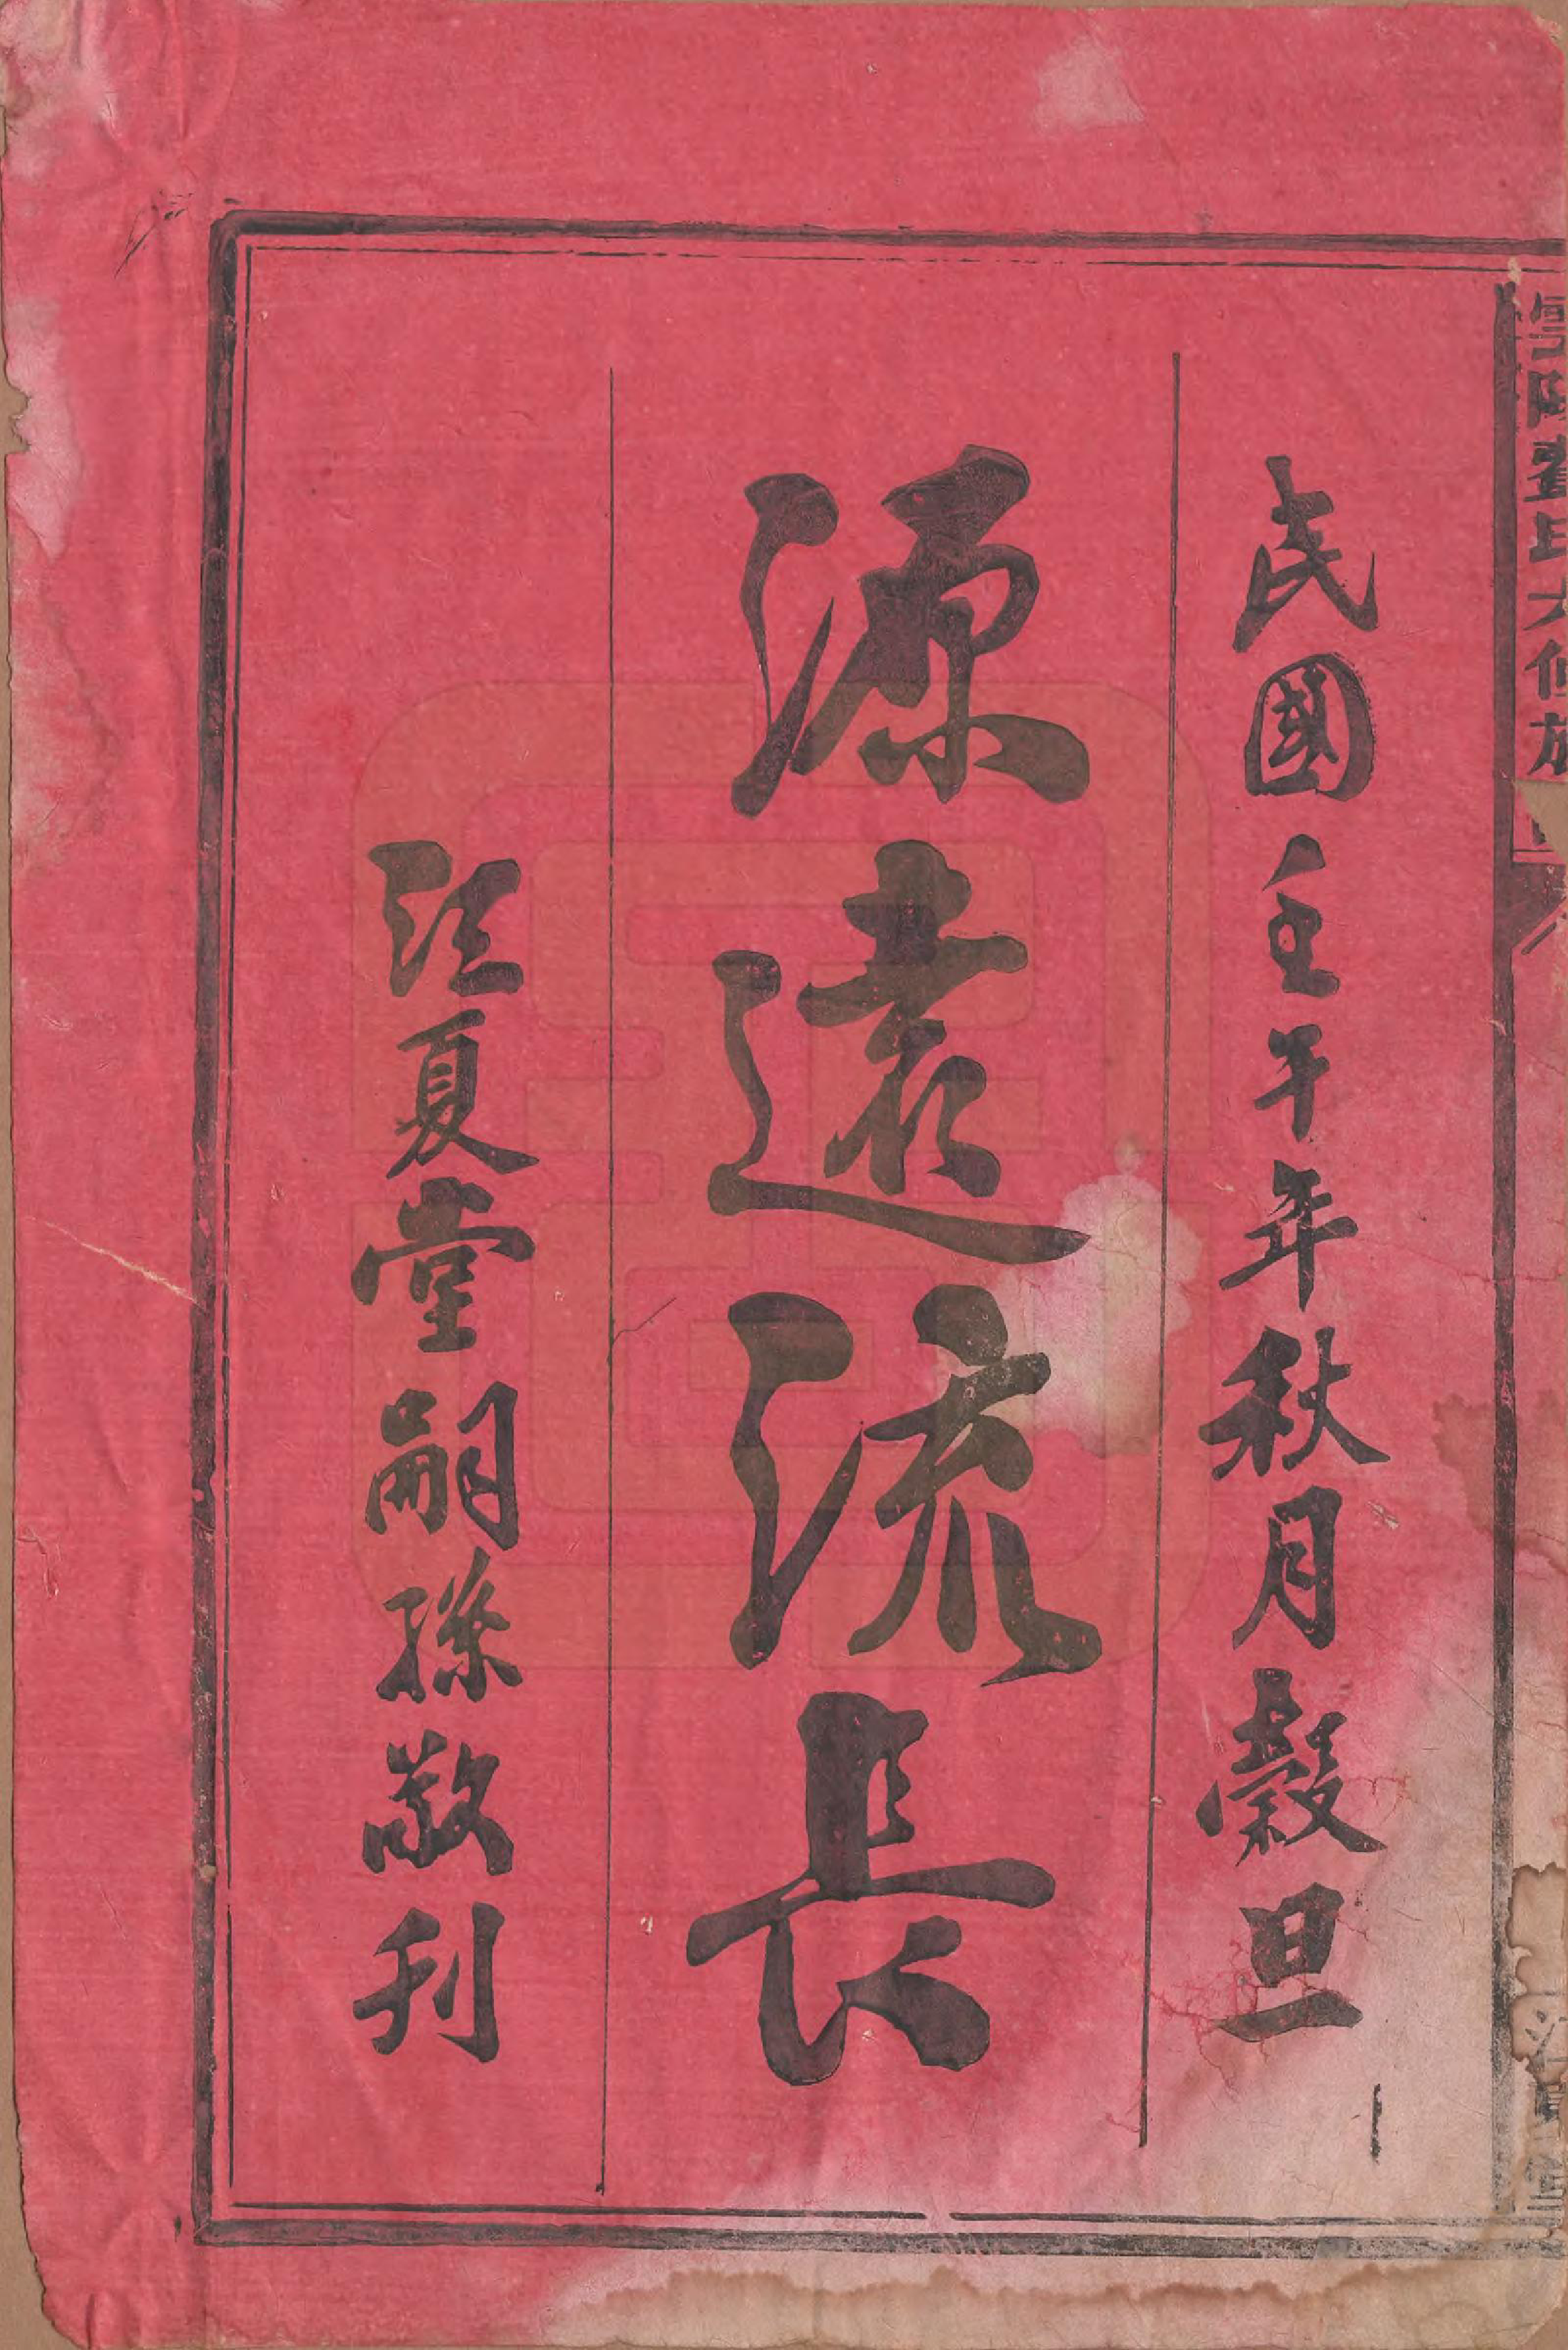 民國壬午年秋月穀旦
源遠流長
江夏堂嗣孫敬刊